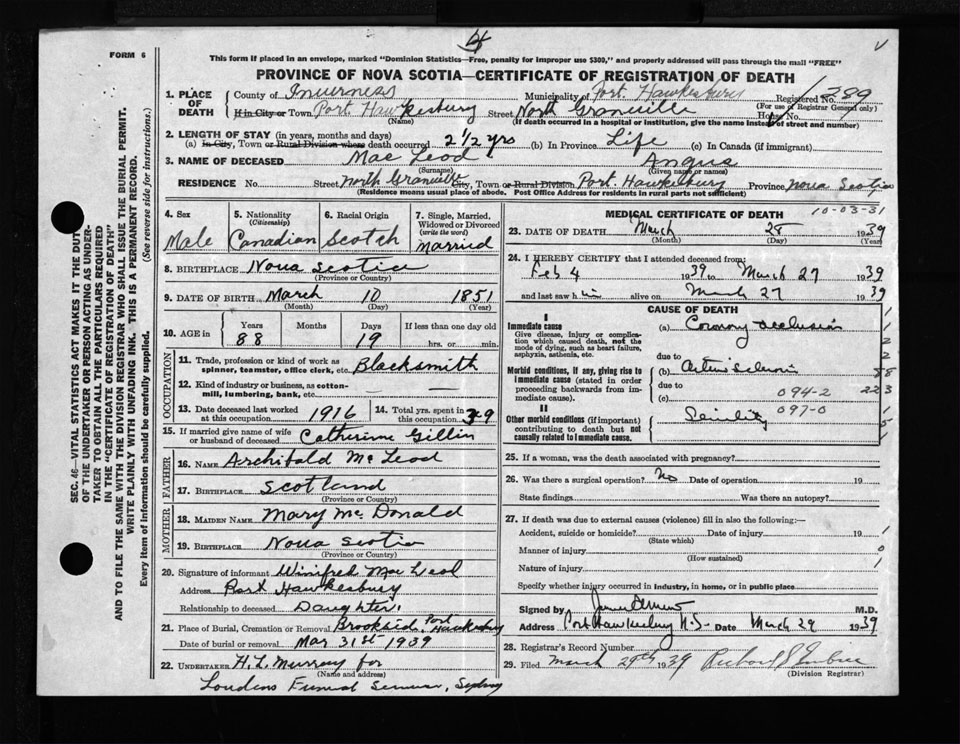 4
FORM 6
This form if placed in an envelope, marked "Dominion Statistics—Free, penalty for improper use $300," and properly addressed will pass through the mail "FREE"
PROVINCE OF NOVA SCOTIA—CERTIFICATE OF REGISTRATION OF DEATH
1. PLACE OF DEATH County of Inverness Municipality of Port Hawkesbury Registered No. 789
If in City or Town Port Hawkesbury Street North Granville House No.
(For use of Registrar General only)
(Name) (If death occurred in a hospital or institution, give the name instead of street and number)
2. LENGTH OF STAY (in years, months and days)
(a) In City, Town or Rural Division where death occurred 2 1/2 yrs (b) In Province Life (c) In Canada (if immigrant)
3. NAME OF DECEASED Mac Leod Angus
(Surname) (Given name or names)
RESIDENCE No. Street North Granville City, Town or Rural Division Port Hawkesbury Province Nova Scotia
(Residence means usual place of abode. Post Office Address for residents in rural parts not sufficient)
4. Sex Male
5. Nationality (Citizenship) Canadian
6. Racial Origin Scotch
7. Single, Married, Widowed or Divorced (write the word) Married
8. BIRTHPLACE Nova Scotia
(Province or Country)
9. DATE OF BIRTH March 10 1851
(Month) (Day) (Year)
10. AGE in Years Months Days If less than one day
88 19 hrs. or min.
OCCUPATION
11. Trade, profession or kind of work as spinner, teamster, office clerk, etc. Blacksmith
12. Kind of industry or business, as cotton-mill, lumbering, bank, etc.
13. Date deceased last worked at this occupation 1916
14. Total yrs. spent in this occupation 39
15. If married give name of wife or husband of deceased Catherine Gillin
FATHER
16. NAME Archibald McLeod
17. BIRTHPLACE Scotland
(Province or Country)
MOTHER
18. MAIDEN NAME Mary McDonald
19. BIRTHPLACE Nova Scotia
(Province or Country)
20. Signature of informant Winifred Mac Leod
Address Port Hawkesbury
Relationship to deceased Daughter
21. Place of Burial, Cremation or Removal Brookside, Port Hawkesbury
Date of burial or removal Mar 31st 1939
22. UNDERTAKER H. L. Murray for
(Name and address)
Loudens Funeral Sydney
MEDICAL CERTIFICATE OF DEATH
10-03-31
23. DATE OF DEATH March 28 1939
(Month) (Day) (Year)
24. I HEREBY CERTIFY that I attended deceased from:
Feb 4 1939 to March 27 1939
and last saw him alive on March 27 1939
CAUSE OF DEATH
I
Immediate cause
Give disease, injury or complication which caused death, not the mode of dying, such as heart failure, asphyxia, asthenia, etc.
(a) Coronary occlusion
due to
Morbid conditions, if any, giving rise to immediate cause (stated in order proceeding backwards from immediate cause).
(b)
due to
(c) 094-2
097-0
II
Other morbid conditions (if important) contributing to death but not causally related to immediate cause.
Senility
25. If a woman, was the death associated with pregnancy?
26. Was there a surgical operation? No Date of operation 19
State findings Was there an autopsy?
27. If death was due to external causes (violence) fill in also the following:—
Accident, suicide or homicide? Date of injury 19
(State which)
Manner of injury
(How sustained)
Nature of injury
Specify whether injury occurred in industry, in home, or in public place
Signed by M.D.
Address Port Hawkesbury N.S. Date March 29 1939
28. Registrar's Record Number
29. Filed March 29th 1939 Richard
(Division Registrar)
SEC. 46—VITAL STATISTICS ACT MAKES IT THE DUTY
OF THE UNDERTAKER OR PERSON ACTING AS UNDERTAKER TO OBTAIN ALL THE PARTICULARS REQUIRED
IN THE "CERTIFICATE OF REGISTRATION OF DEATH"
AND TO FILE THE SAME WITH THE DIVISION REGISTRAR WHO SHALL ISSUE THE BURIAL PERMIT.
WRITE PLAINLY WITH UNFADING INK. THIS IS A PERMANENT RECORD.
Every item of information should be carefully supplied. (See reverse side for instructions.)